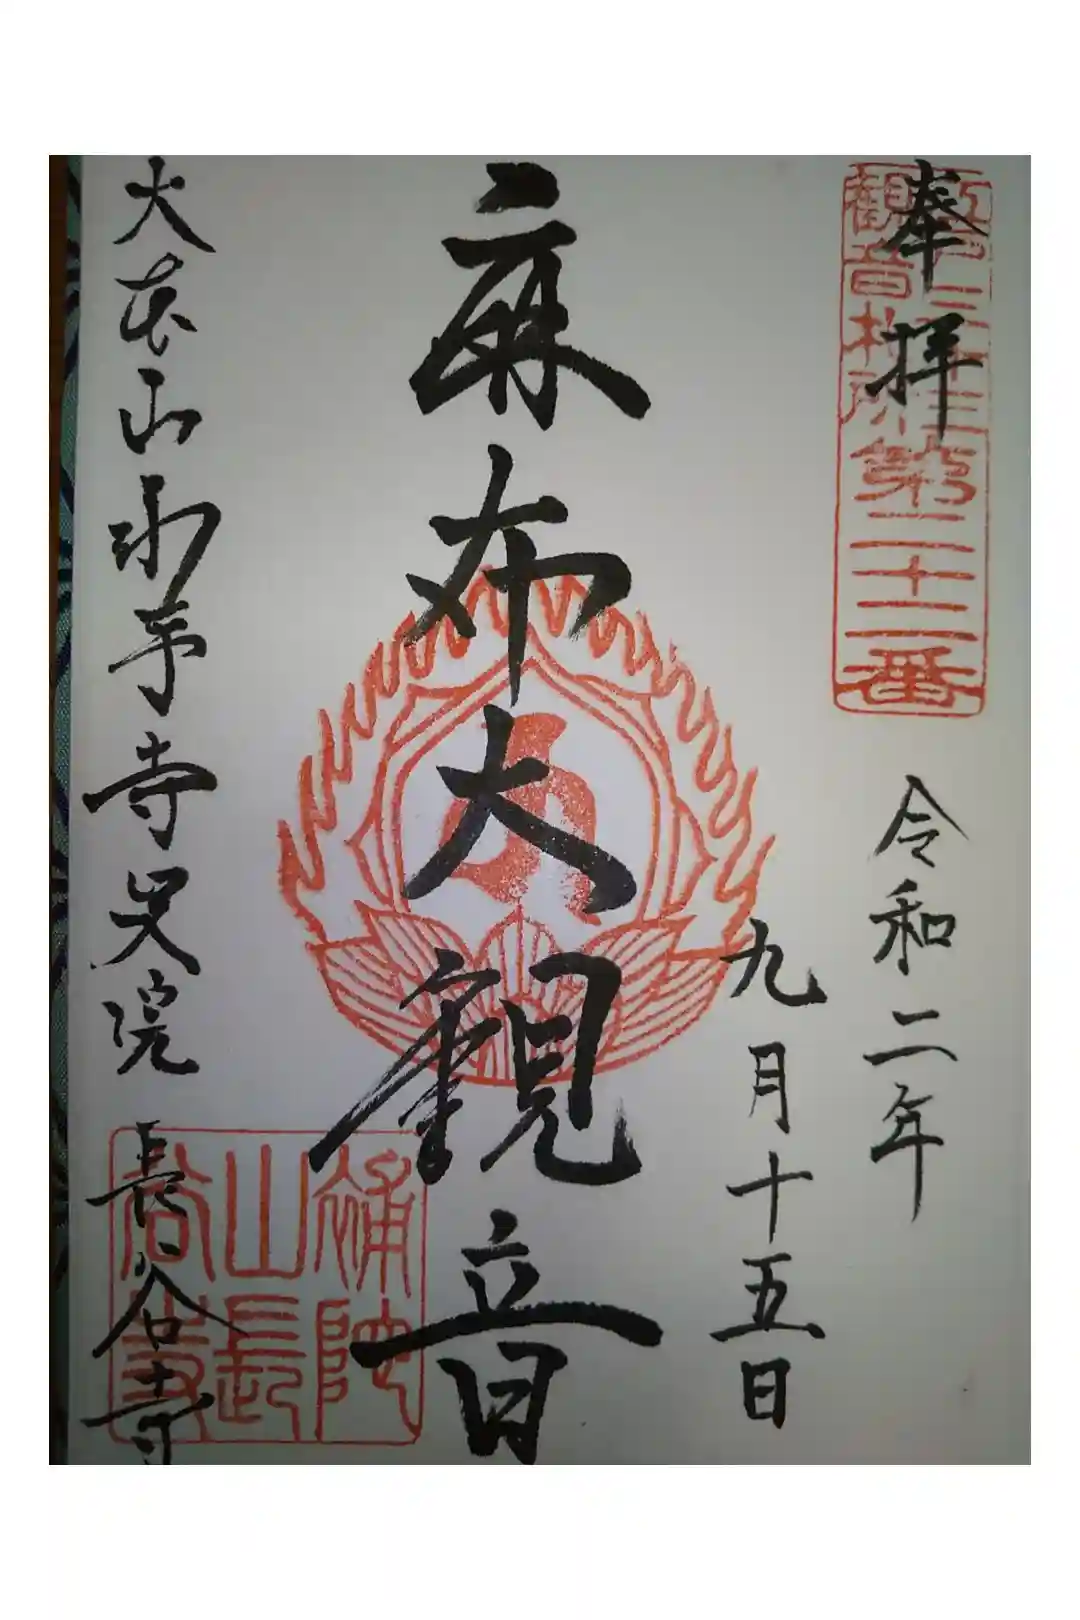 奉拝
江戸三十三
観音札所第二十二番
令和二年
九月十五日
麻布大観音
大本山永平寺別院 長谷寺
補陀
山長
谷寺